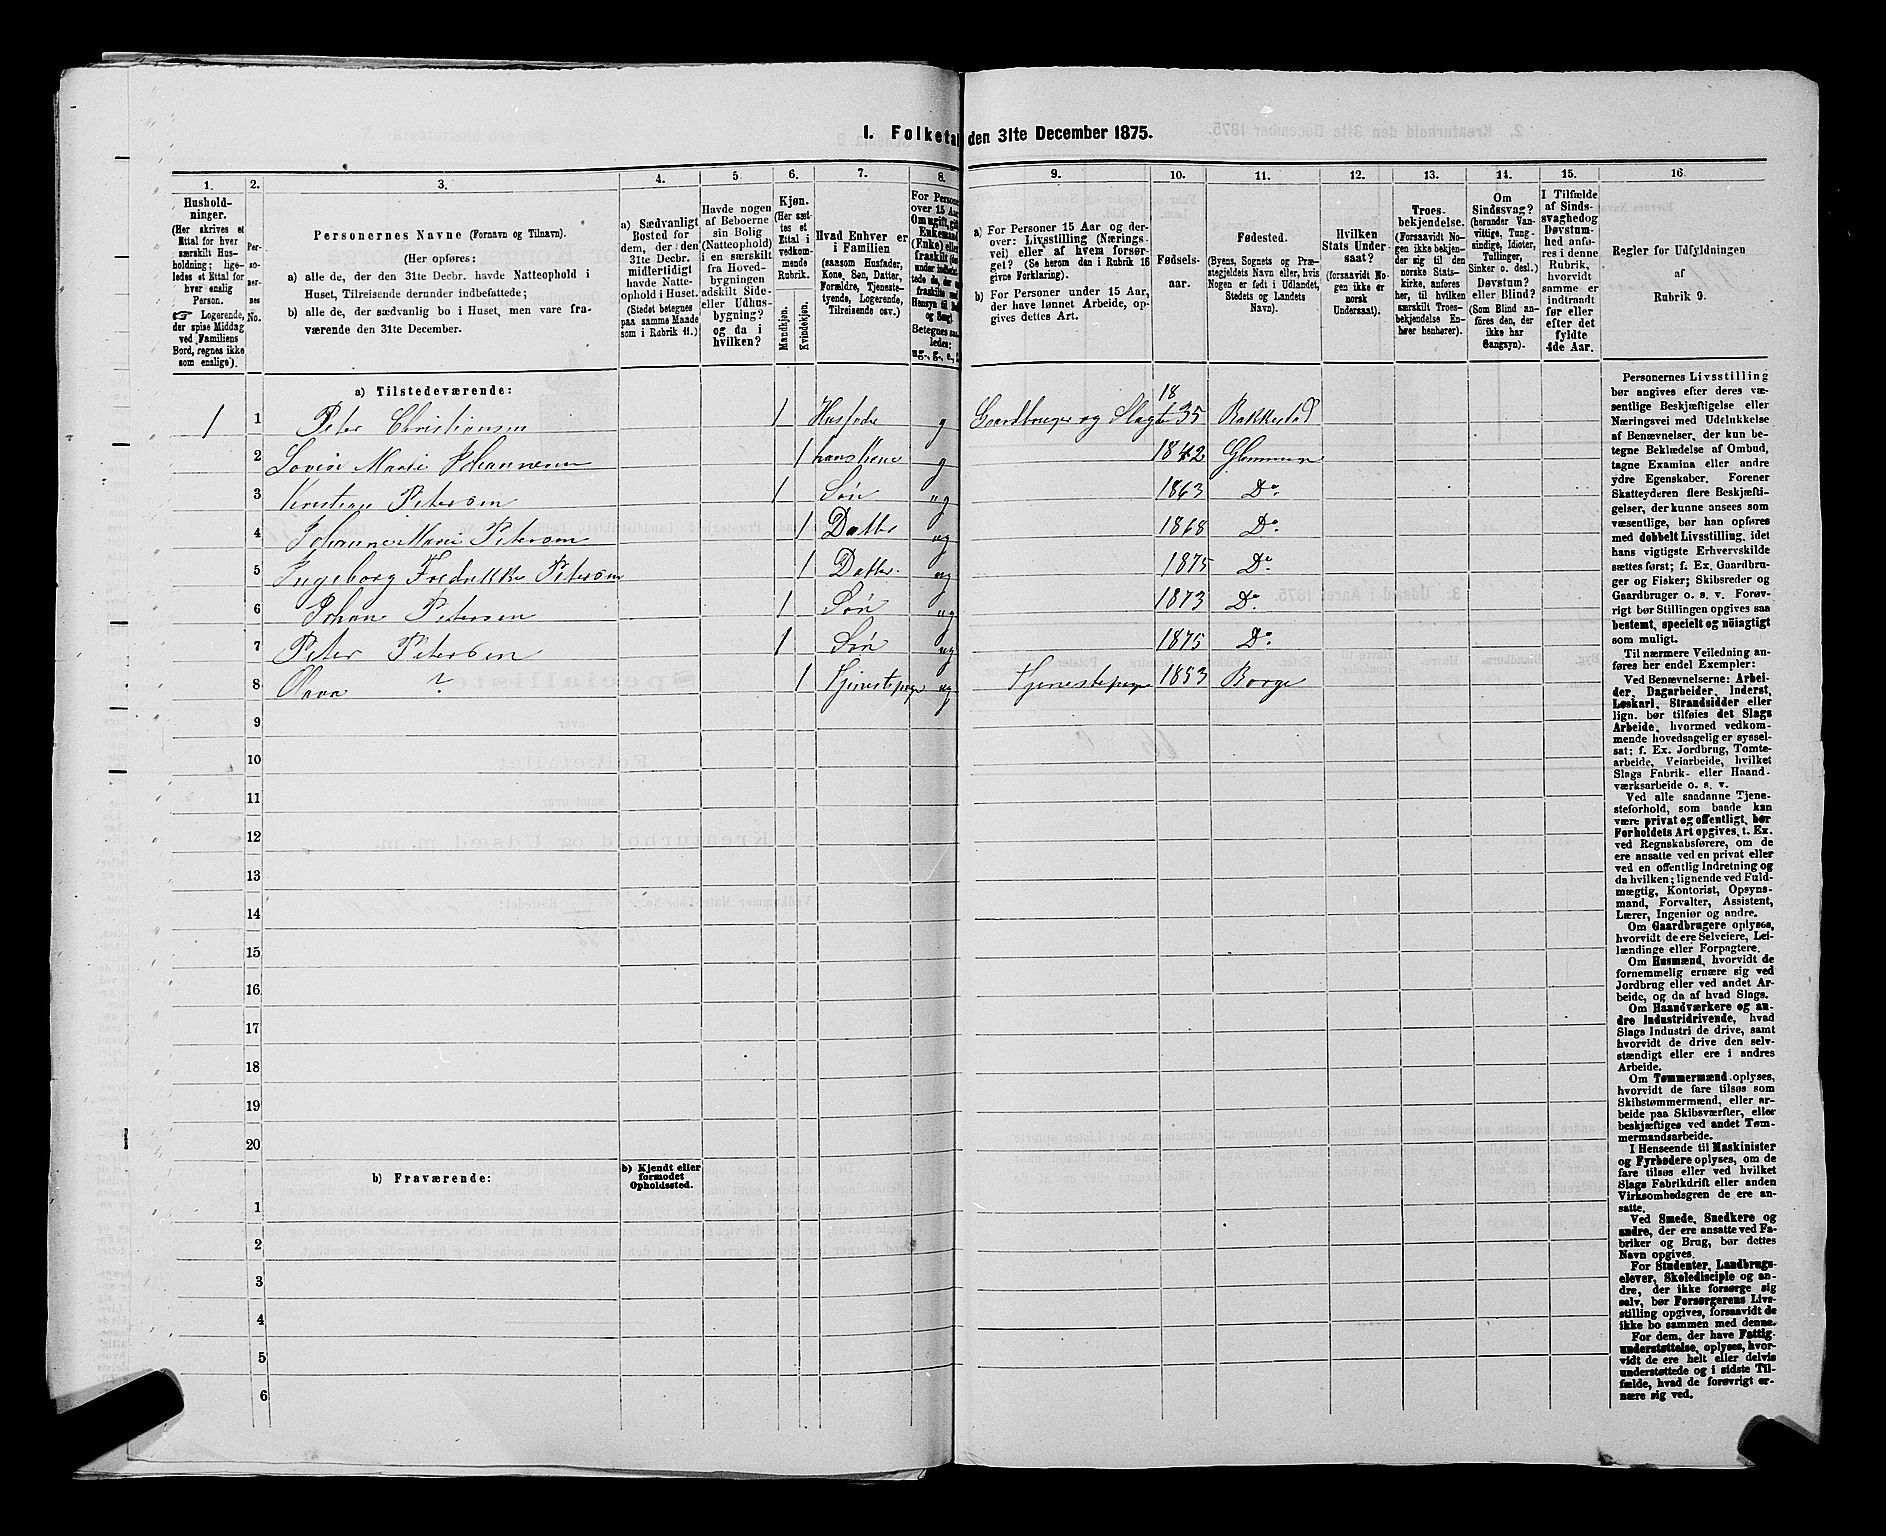 I. Folketal den 31te December 1875.
1. 2. 3. 4. 5. 6. 7. 8. 9. 10. 11. 12. 13. 14. 15. 16.
Husholdninger. (Her skrives et Ettal for hver særskilt Husholdning; ligeledes et Ettal for hver enslig Person. ☞ Logerende, der spise Middag ved Familiens Bord, regnes ikke som enslige).
Personernes No.
Personernes Navne (Fornavn og Tilnavn).
(Her opføres:
a) alle de, der den 31te Decbr. havde Natteophold i Huset, Tilreisende derunder indbefattede;
b) alle de, der sædvanlig bo i Huset, men vare fraværende den 31te December.
a) Sædvanligt Bosted for dem, der den 31te Decbr. midlertidigt havde Natteophold i Huset. (Stedet betegnes paa samme Maade som i Rubrik 11.)
Havde nogen af Beboerne sin Bolig (Natteophold) i en særskilt fra Hovedbygningen adskilt Side- eller Udhusbygning? og da i hvilken?
Kjøn. (Her sættes et Ettal i vedkommende Rubrik.
Mandkjøn. Kvindekjøn.
Hvad Enhver er i Familien (saasom Husfader, Kone, Søn, Datter, Forældre, Tjenestetyende, Logerende, Tilreisende osv.)
a) For Personer 15 Aar og derover: Livsstilling (Næringsvei) eller af hvem forsørget? (Se herom den i Rubrik 16 givne Forklaring).
b) For Personer under 15 Aar, der have lønnet Arbeide, opgives dettes Art.
Fødselsaar.
Fødested. (Byens, Sognets og Præstegjeldets Navn eller, hvis Nogen er født i Udlandet, Stedets og Landets Navn).
Hvilken Stats Undersaat? (forsaavidt Nogen ikke er norsk Undersaat).
Troesbekjendelse. (Forsaavidt Nogen ikke bekjender sig til den norske Statskirke, anføres her, til hvilken særskilt Troesbekjendelse Enhver henhører).
Om Sindssvag? (herunder Vanvittige, Tungsindige, Idioter, Tullinger, Sinker o. desl.) Døvstum? eller Blind? (Som Blind anføres den, der ikke har Gangsyn).
I Tilfælde af Sindssvaghed og Døvstumhed anføres i denne Rubrik, hvorvidt samme er indtraadt før eller efter det fyldte 4de Aar.
Regler for Udfyldningen af Rubrik 9.
a) Tilstedeværende:
1 1 Peter Christiansen 1 Husfader g Gaardbruger og Slagt 1835 Rakkestad
2 Lovise Marie Johannesen 1 hans Kone g 1842 Glemmen
3 Kristian Petersen 1 Søn ug 1863 Do.
4 Johanne Marie Petersen 1 Datter ug 1868 Do.
5 Ingeborg Fredrikke Petersen 1 Datter. ug 1875 Do.
6 Johan Petersen 1 Søn ug 1873 Do.
7 Peter Petersen 1 Søn ug 1875 Do.
8 Olava ? 1 Tjenestepige ug Tjenestepige 1853 Borge
9
10
11
12
13
14
15
16
17
18
19
20
b) Fraværende: b) Kjendt eller formodet Opholdssted.
1
2
3
4
5
6
Personernes Livsstilling
bør angives efter deres væsentlige
Beskjæftigelse eller
Næringsvei med Udelukkelse
af Benævnelser, der kun betegne
Beklædelse af Ombud,
tagne Examina eller andre
ydre Egenskaber. Forener
Skatteyderen flere Beskjæftigelser,
der kunne ansees som
væsentlige, bør han opføres
med dobbelt Livsstilling, idet
hans vigtigste Erhvervskilde
sættes først; f. Ex. Gaardbruger
og Fisker; Skibsreder og
Gaardbruger o. s. v. Forøvrigt
bør Stillingen opgives saa
bestemt, specielt og nøiagtigt
som muligt.
Til nærmere Veiledning anføres
her endel Exempler:
Ved Benævnelserne: Arbeider,
Dagarbeider, Inderst,
Løskarl, Strandsidder eller
lign. bør tilføies det Slags
Arbeide, hvormed vedkommende
hovedsagelig er sysselsat;
f. Ex. Jordbrug, Tomtearbeide,
Veiarbeide, hvilket
Slags Fabrik- eller Haandværksarbeide
o. s. v.
Ved alle saadanne Tjenesteforhold,
som baade kan
være privat og offentligt, bør
Forholdets Art opgives, t. Ex.
ved Regnskabsførere, om de
ere ansatte ved en privat eller
ved en offentlig Indretning og
da hvilken; lignende ved Fuldmægtig,
Kontorist, Opsynsmand,
Forvalter, Assistent,
Lærer, Ingeniør og andre.
Om Gaardbrugere oplyses,
hvorvidt de ere Selveiere, Leilændinge
eller Forpagtere.
Om Husmænd, hvorvidt de
fornemmelig ernære sig ved
Jordbrug eller ved andet Arbeide,
og da af hvad Slags.
Om Haandværkere og andre
Industridrivende, hvad
Slags Industri de drive, samt
hvorvidt de drive den selvstændigt
eller ere i andres
Arbeide.
Om Tømmermænd oplyses,
hvorvidt de fare tilsøs som
Skibstømmermænd, eller arbeide
paa Skibsværfter, eller
beskjæftiges ved andet Tømmermandsarbeide.
I Henseende til Maskinister
og Fyrbødere oplyses, om de
fare tilsøs eller ved hvilket
Slags Fabrikdrift eller anden
Virksomhedsgren de ere ansatte.
Ved Smede, Snedkere og
andre, der ere ansatte ved Fabriker
og Brug, bør dettes
Navn opgives.
For Studenter, Landbrugselever,
Skoledisciple og andre,
der ikke forsørge sig
selv, bør Forsørgerens Livsstilling
opgives, forsaavidt de
ikke bo sammen med denne.
For dem, der have Fattigunderstøttelse,
oplyses, hvorvidt
de ere helt eller delvis
understøttede og i sidste Tilfælde,
hvad de forøvrigt ernære
sig ved.